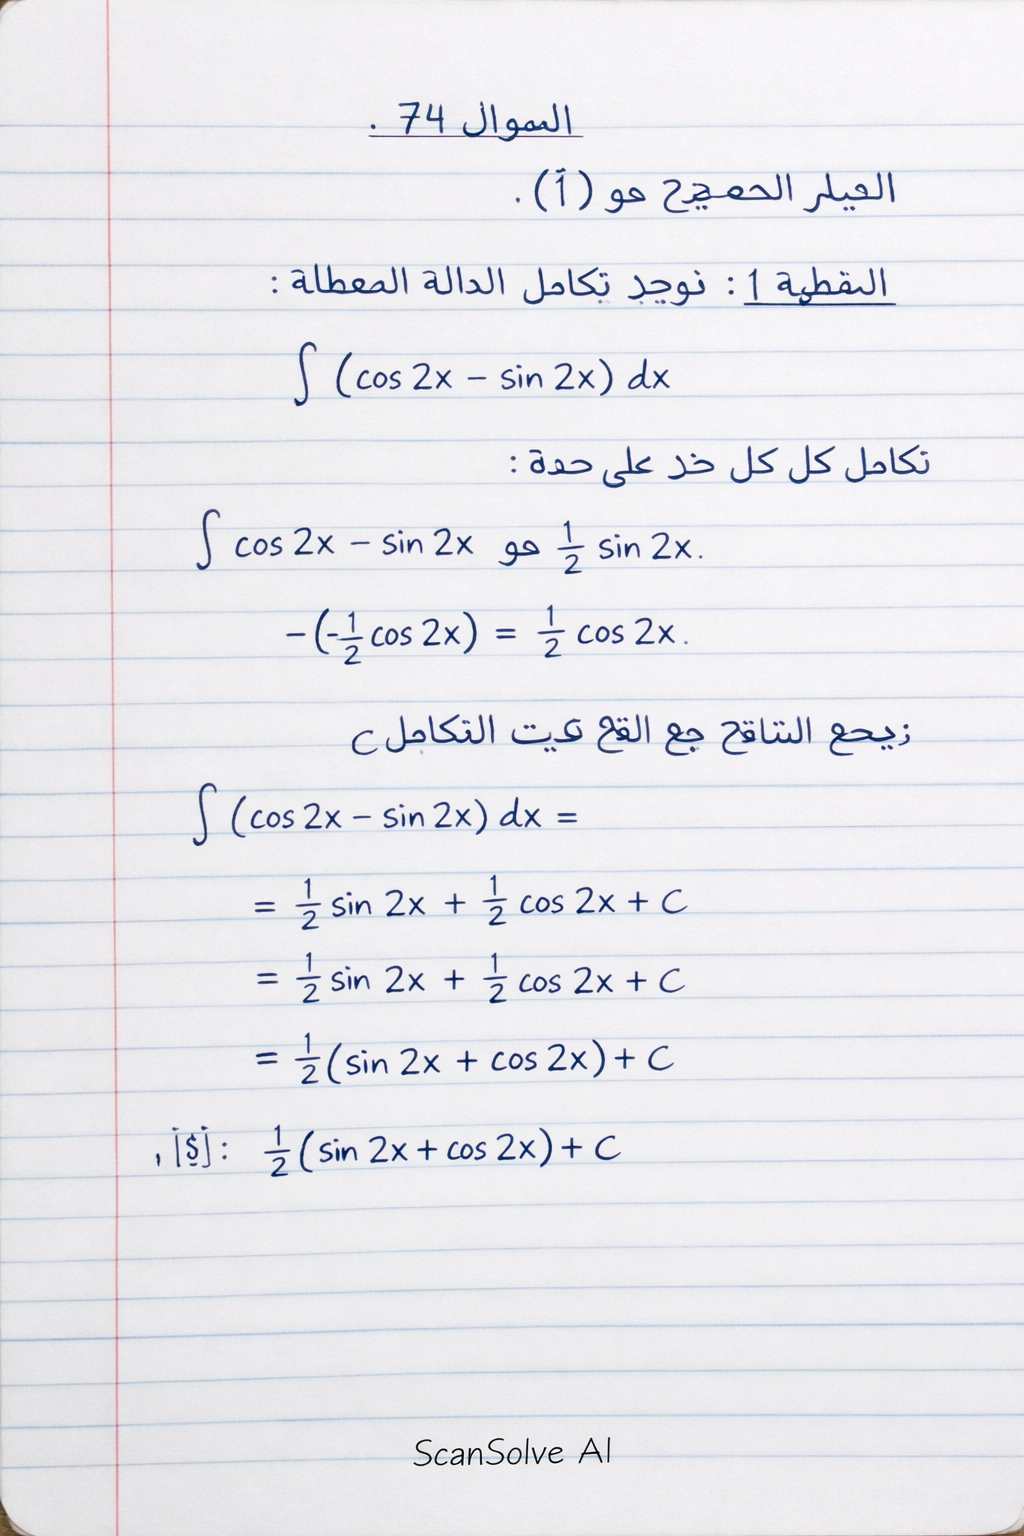 السوال 74 .
الحصيح هو (أ) .
النقطية 1 : نوجد تكامل الدالة المعطاة :
∫ (cos 2x − sin 2x) dx
تكامل كل كل خد على حدة :
∫ cos 2x − sin 2x هو 1/2 sin 2x.
−(−1/2 cos 2x) = 1/2 cos 2x.
التكامل C
∫ (cos 2x − sin 2x) dx =
= 1/2 sin 2x + 1/2 cos 2x + C
= 1/2 sin 2x + 1/2 cos 2x + C
= 1/2 (sin 2x + cos 2x) + C
: 1/2 (sin 2x + cos 2x) + C
ScanSolve AI